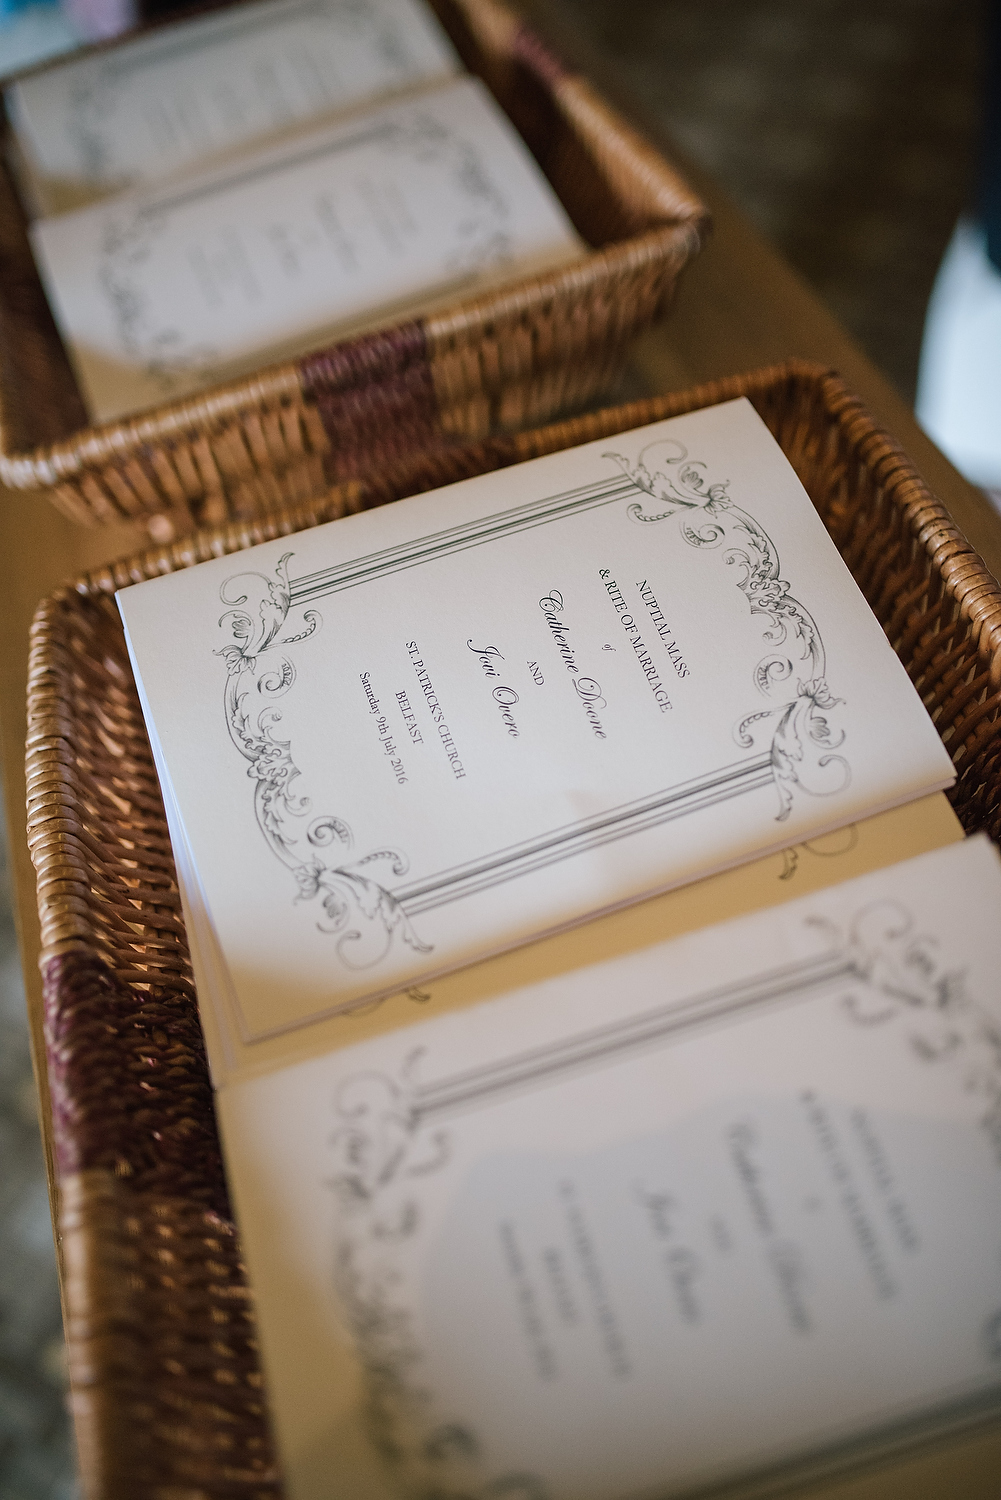 NUPTIAL MASS
& RITE OF MARRIAGE
of
Catherine Doone
AND
Joui Overo
ST. PATRICK'S CHURCH
BELFAST
Saturday 9th July 2016